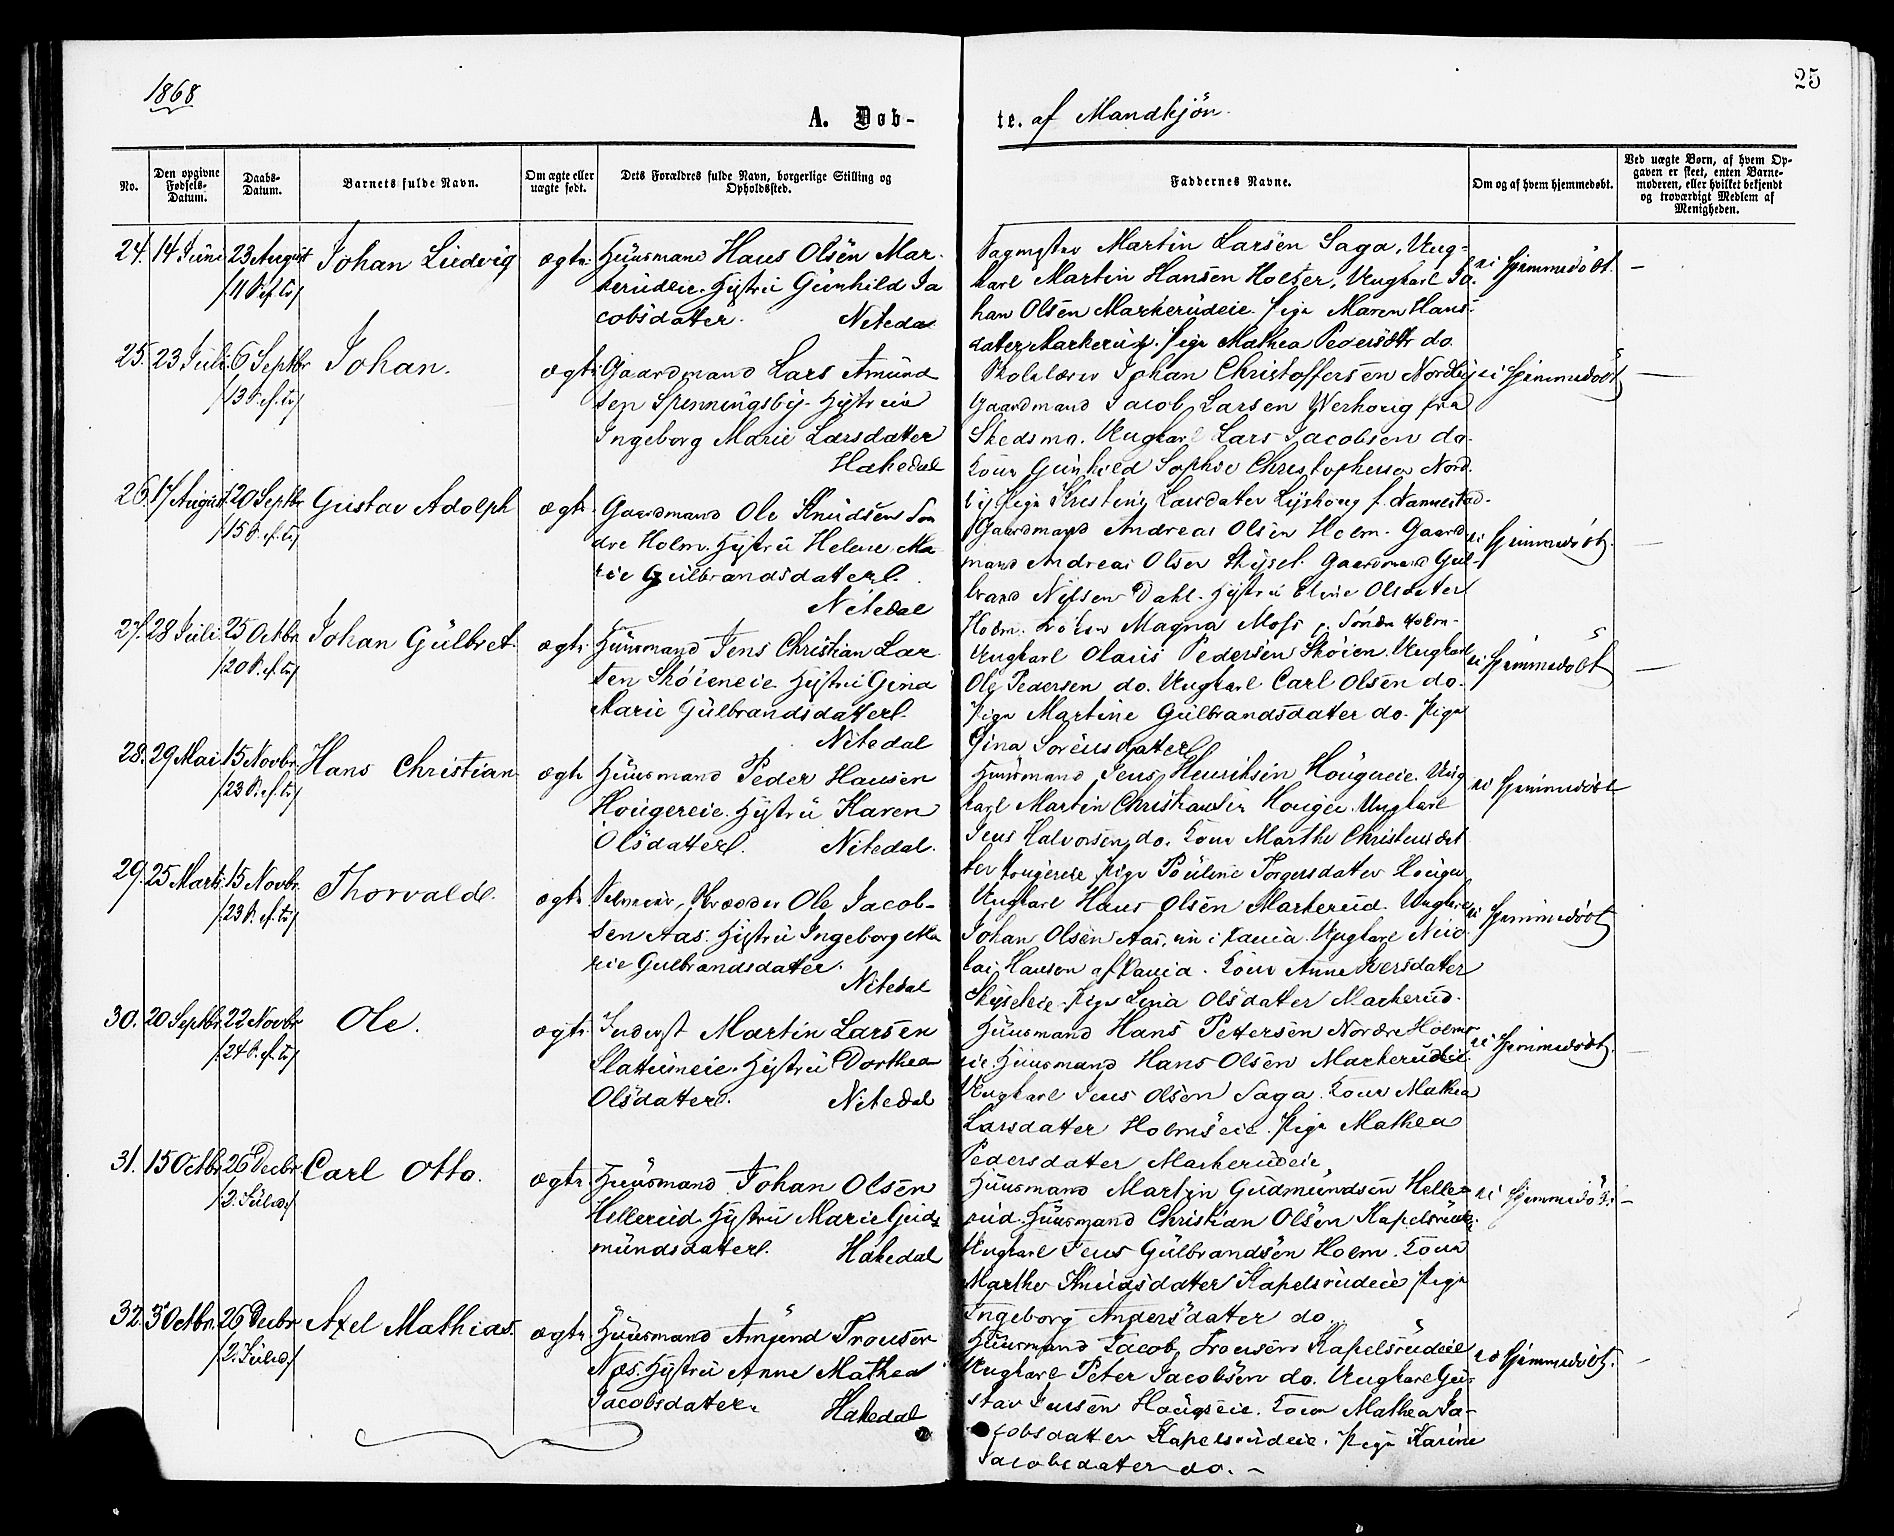 1868
25
A. Døb-
te. af Mandkjøn.
No.
Den opgivne Fødsels-Datum.
Daabs-Datum.
Barnets fulde Navn.
Om ægte eller uægte født.
Dets Forældres fulde Navn, borgerlige Stilling og Opholdssted.
Faddernes Navne.
Om og af hvem hjemmedøbt.
Ved uægte Børn, af hvem Op-
gaven er skeet, enten Barne-
moderen, eller hvilket bekjendt
og troværdigt Medlem af
Menigheden.
24. 14 Juni 23 August Johan Ludvig ægte
/11 S. ef. tr/
Huusmand Hans Olsen Mar-
kerudeie. Hustru Gunhild Ja
cobsdater. Nitedal
Martin Larsen Saga, Ung-
karl Martin Hansen Holter, Ungkarl Jo-
han Olsen Markerudeie. Pige Maren Hans-
dater Markerud. Pige Mathea Pedersdtr do.
ei hjemmedøbt.
25. 23 Juli 6 Septbr Johan. ægte
/13 S. ef. tr/
Gaardmand Lars Amund
sen Spenningsby. Hustru
Ingeborg Marie Larsdatter
Hakedal
Skolelærer Johan Christoffersen Nordby
Gaardmand Jacob Larsen fra
Skedsmo. Ungkarl Lars Jacobsen do.
Kone Gunhild Sophie Christophersen Nord-
by Pige Larsdater f. Nannestad.
ei hjemmedøbt
26. 17 August 20 Septbr Gustav Adolph ægte
/15 S. ef. tr/
Gaardmand Ole Knudsen Søn
dre Holm. Hustru Helene Ma-
rie Gulbrandsdatter.
Nitedal
Gaardmand Andreas Olsen Holm. Gaard
mand Andreas Olsen Skyset. Gaardmand Gul-
brand Nilsen Dahl. Hustru Eline Olsdater
Holm. Frøken Magna Moss p. Søndre Holm.
ei hjemmedøbt.
27. 28 Juli 25 Octbr. Johan Gulbret. ægte
/20 S. ef. tr/
Huusmand Jens Christian Lar
sen Skøieneie Hustru Gina
Marie Gulbrandsdatter.
Nitedal
Ungkarl Olaus Pedersen Skøien. Ungkarl
Ole Pedersen do. Ungkarl Carl Olsen do.
Pige Martine Gulbrandsdater do. Pige
Gina Sørensdatter
ei hjemmedøbt
28. 29 Mai 15 Novbr. Hans Christian. ægte
/23 S. ef. tr/
Huusmand Peder Hansen
Hougereie. Hustru Karen
Olsdatter. Nitedal.
Huusmand Jens Henriksen Hougereie. Ung
karl Martin Christiansen Houger. Ungkarl
Jens Halvorsen do. Kone Marthe Christensdat
ter Hougereie Pige Pouline Torgersdater Houger
ei hjemmedøbt
29. 25 Marts 15 Novbr. Thorvald. ægte
/23 S. ef. tr/
Ole Jacob-
sen Aas. Hustru Ingeborg Ma
rie Gulbrandsdater.
Nitedal
Ungkarl Hans Olsen Markerud. Ungkarl
Johan Olsen Aas. Ungkarl Nico
lai Hansen af Kone Anne Iversdater
Skyseteie. Pige Lina Olsdater Markerud.
ei hjemmedøbt
30. 20 Septbr. 22 Novbr. Ole. ægte
/24 S. ef. tr/
Inderst Martin Larsen
Slattumeie. Hustru Dorthea
Olsdatter. Nitedal
Huusmand Hans Pettersen Nordre Holms-
eie. Huusmand Hans Olsen Markerudeie
Ungkarl Jens Olsen Saga. Kone Mathea
Larsdater Holmseie. Pige Mathea
Pedersdatter Markerudeie.
ei hjemmedøbt.
31. 15 Octbr. 26 Decbr. Carl Otto. ægte
/2. Juled./
Huusmand Johan Olsen
Hellerud. Hustru Marie Gud-
mundsdatter. Hakedal
Huusmand Martin Gudmundsen Helle-
rud. Huusmand Christian Olsen Kapelsrudeie.
Ungkarl Jens Gulbrandsen Holm. Kone
Marthe Knudsdatter Kapelsrudeie Pige
Ingeborg Andersdater do.
ei hjemmedøbt.
32. 3 Octbr. 26 Decbr. Axel Mathias. ægte
/2. Juled./
Huusmand Amund Tronsen
Næs. Hustru Anne Mathea
Jacobsdatter. Hakedal
Huusmand Jacob Tronsen Kapelsrudeie
Ungkarl Peter Jacobsen do. Ungkarl Gu-
stav Jensen Hougseie. Kone Mathea Ja-
cobsdatter Kapelsrudeie. Pige Karine
Jacobsdater do.
ei hjemmedøbt.